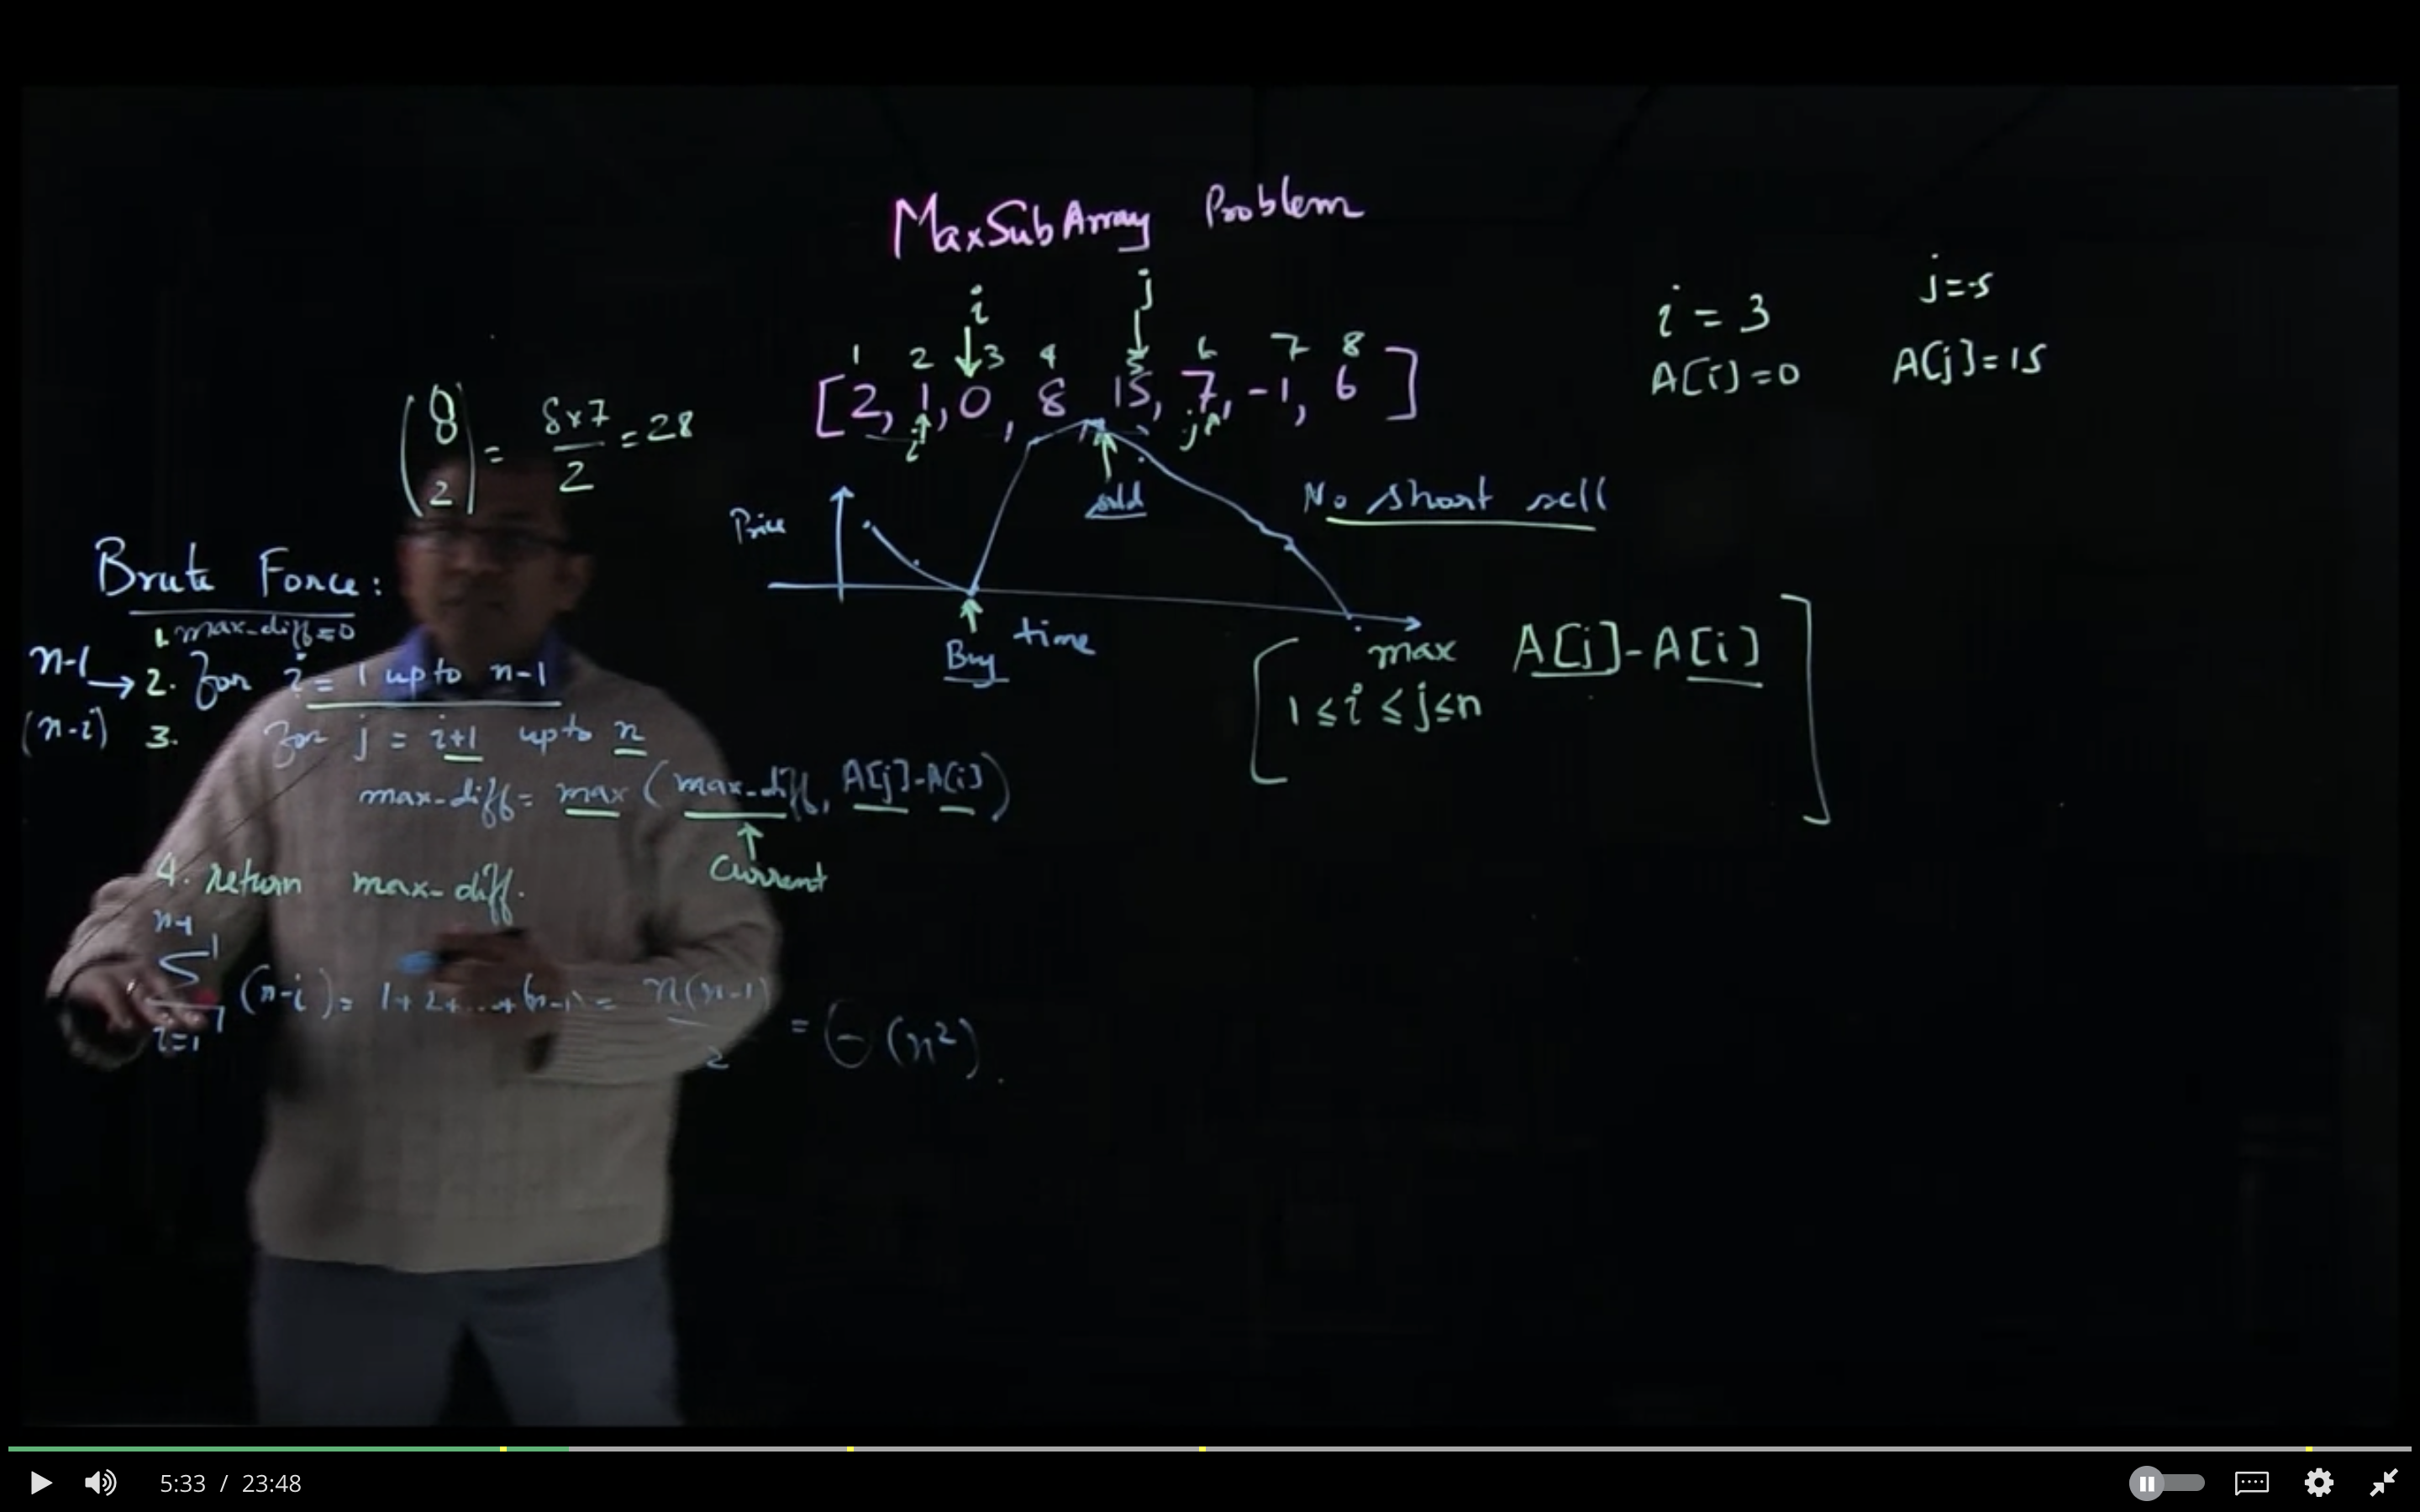 MaxSubArray Problem
i j
1 2 3 4 5 6 7 8
[2, 1, 0, 8 15, 7, -1, 6]
i j
i = 3 j=5
A[i]=0 A[j]=15
(8 2) = 8x7/2 = 28
Price
sold
No short sell
Buy
time
max A[j]-A[i]
1≤i≤j≤n
Brute Force:
1. max-diff=0
n-1 → 2. For i = 1 upto n-1
(n-i) 3. For j = i+1 upto n
max-diff= max (max-diff, A[j]-A[i])
Current
4. return max-diff.
n-1
∑ (n-i) = 1+2+...+(n-1) = n(n-1)/2 = Θ(n²).
i=1
5:33 / 23:48